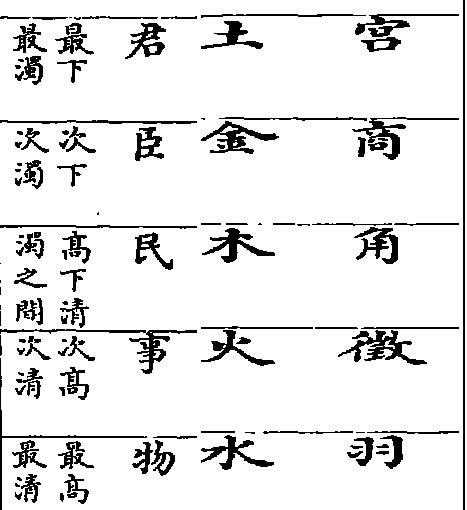 宫 土 君 最下 最濁
商 金 臣 次下 次濁
角 木 民 髙下清 濁之間
徵 火 事 次髙 次清
羽 水 物 最髙 最清